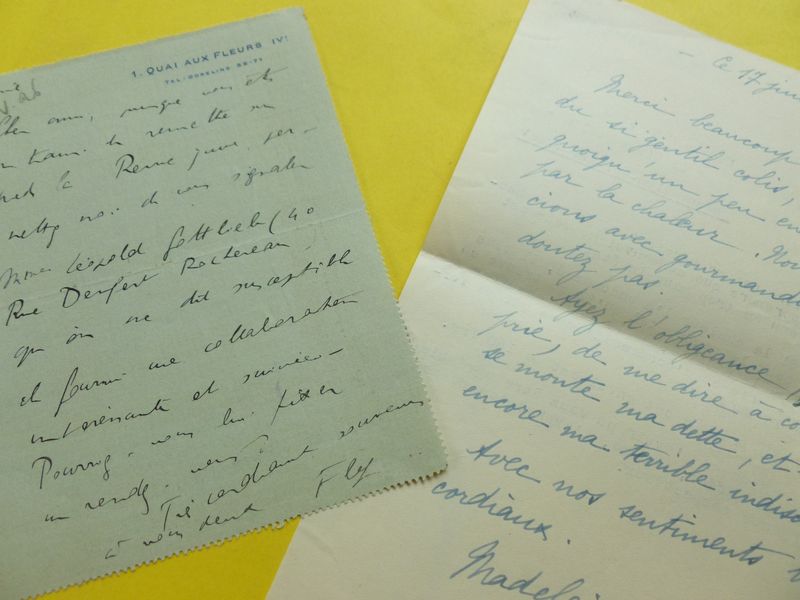 1. QUAI AUX FLEURS IVᵉ
TEL: GOBELINS
ami, puisque vous êtes
en train de remettre sur
pied la Revue juive, per-
mettez moi de vous signaler
Mme Léopold Gottlieb (40
Rue Denfert Rochereau
qu'on me dit susceptible
de fournir une collaboration
intéressante et suivie.–
Pourriez-vous lui fixer
un rendez-vous ?
Très cordiaux souvenirs
à vous deux
Fleg
– Ce 17 juin
Merci beaucoup
du si gentil colis,
quoiqu'un peu
par la chaleur. Nou
cions avec gourmandi
doutez pas.
Ayez l'obligeance, je
prie, de me dire à co
se monte ma dette, et
encore ma terrible indisc
Avec nos sentiments
cordiaux.
Madelei